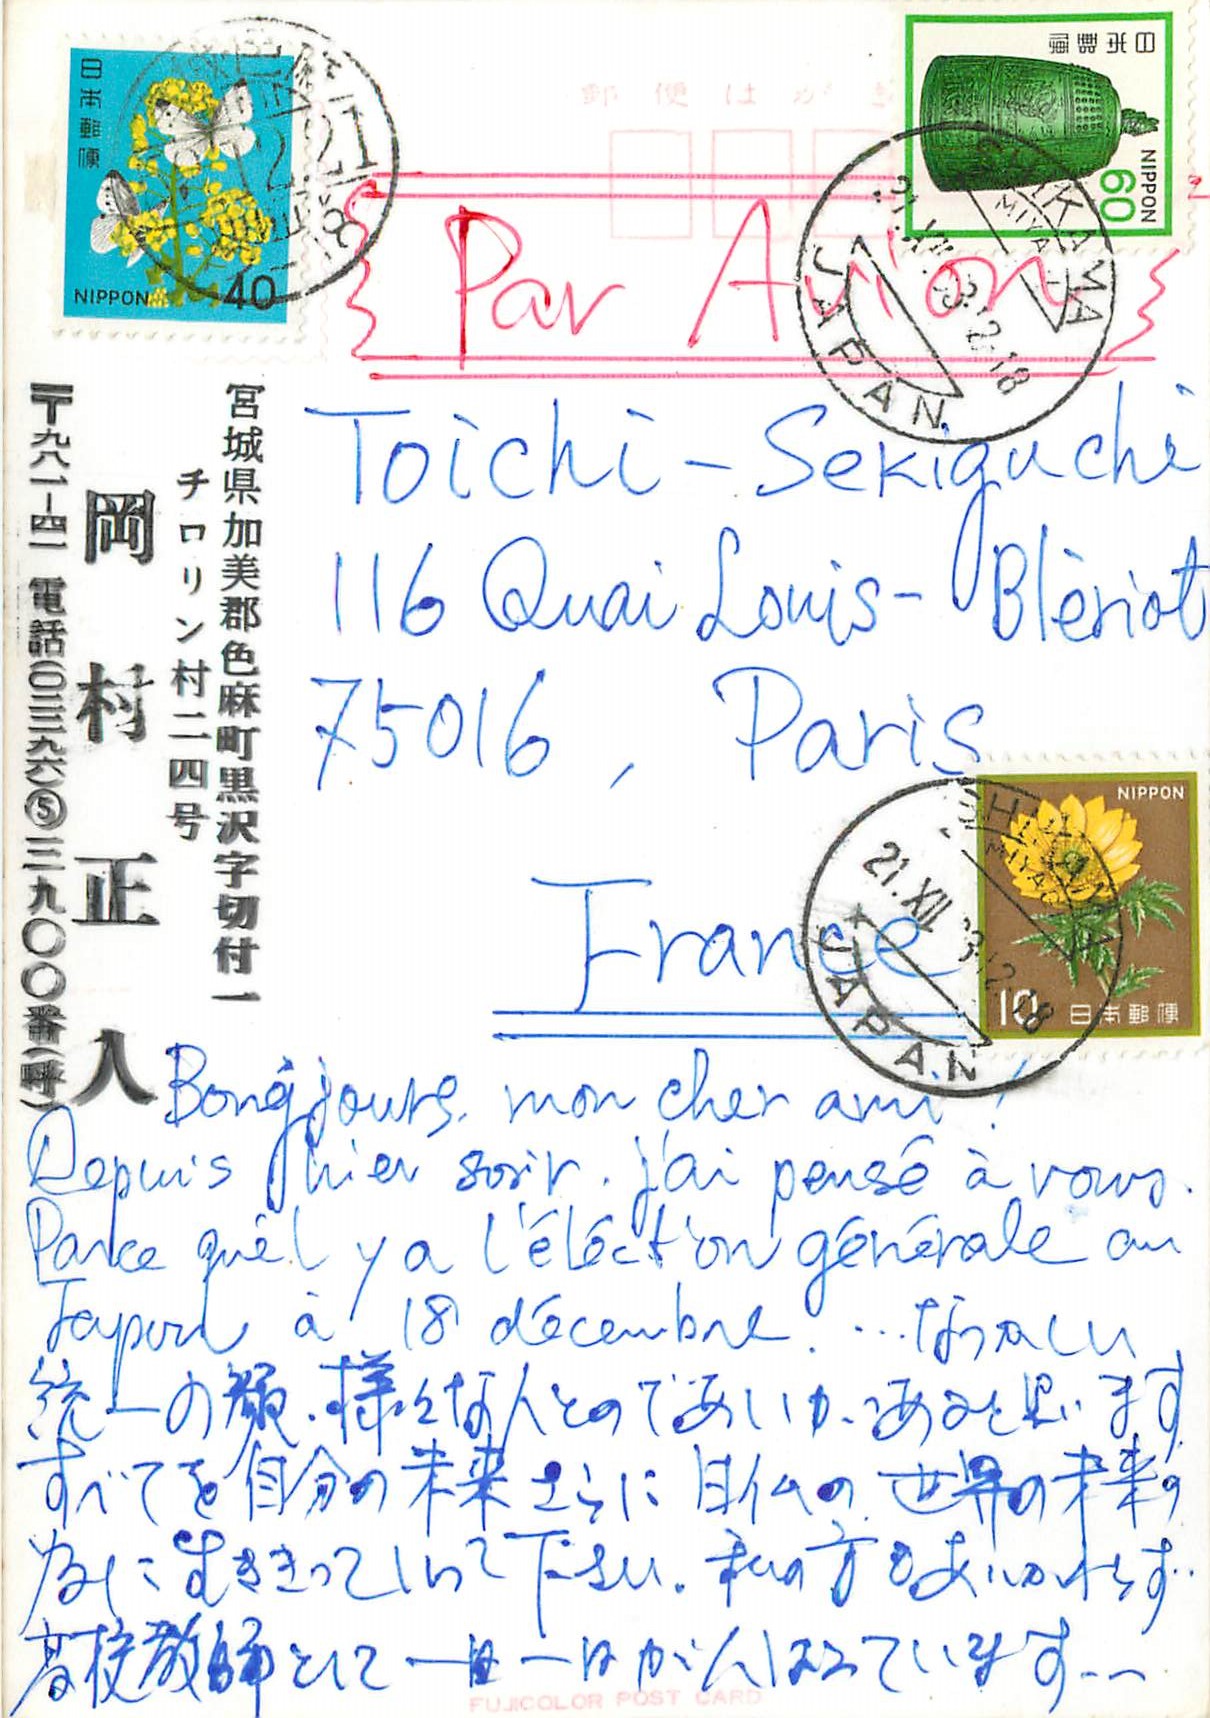 日本郵便
NIPPON
40
日本郵便
NIPPON
60
郵便はがき
Par Avion
SHIKAMA
MIYAGI
21.XII.83.12-18
JAPAN
宮城県加美郡色麻町黒沢字切付一
チロリン村二四号
岡村正人
〒九八一-四一 電話(〇二二九六)⑤三九〇〇番(呼)
Toichi - Sekiguchi
116 Quai Louis - Blèriot
75016, Paris
France
NIPPON
10
日本郵便
21.XII.83.12-18
JAPAN
Bongjours, mon cher ami!
Depuis hier soir, j'ai pensé à vous.
Parce qu'el y a l'éléction générale au
Japon à 18 décembre. ...なつかしい
統一の顔、様々な人とのであいがあると思います
すべてを自分の未来さらに日仏の世界の未来の
為に生ききっていって下さい。私の方もあいかわらず
高校教師として一日一日がんばっています--
FUJICOLOR POST CARD